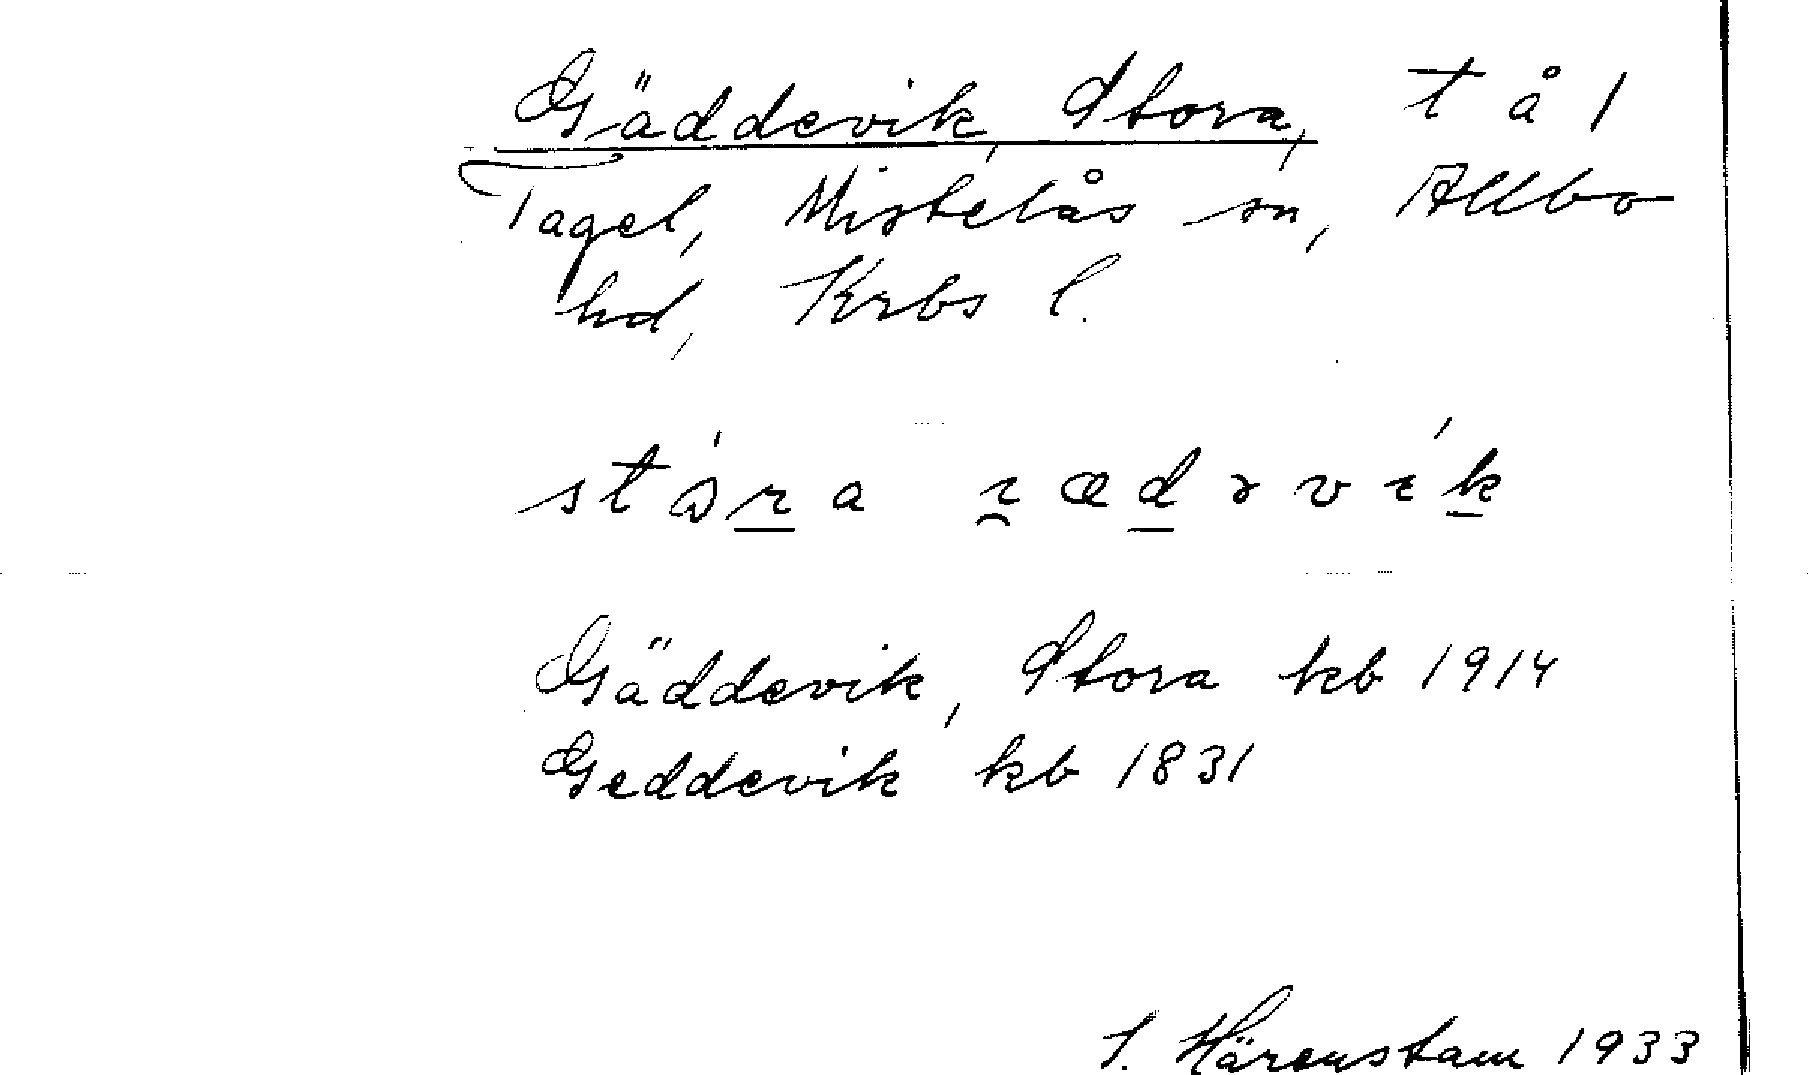 Gäddevik, Stora, t å 1
Tagel, Mistelås sn, Allbo
hd, Krbs l.
Gäddevik, Stora kb 1914
Geddevik kb 1831
Härenstam 1933